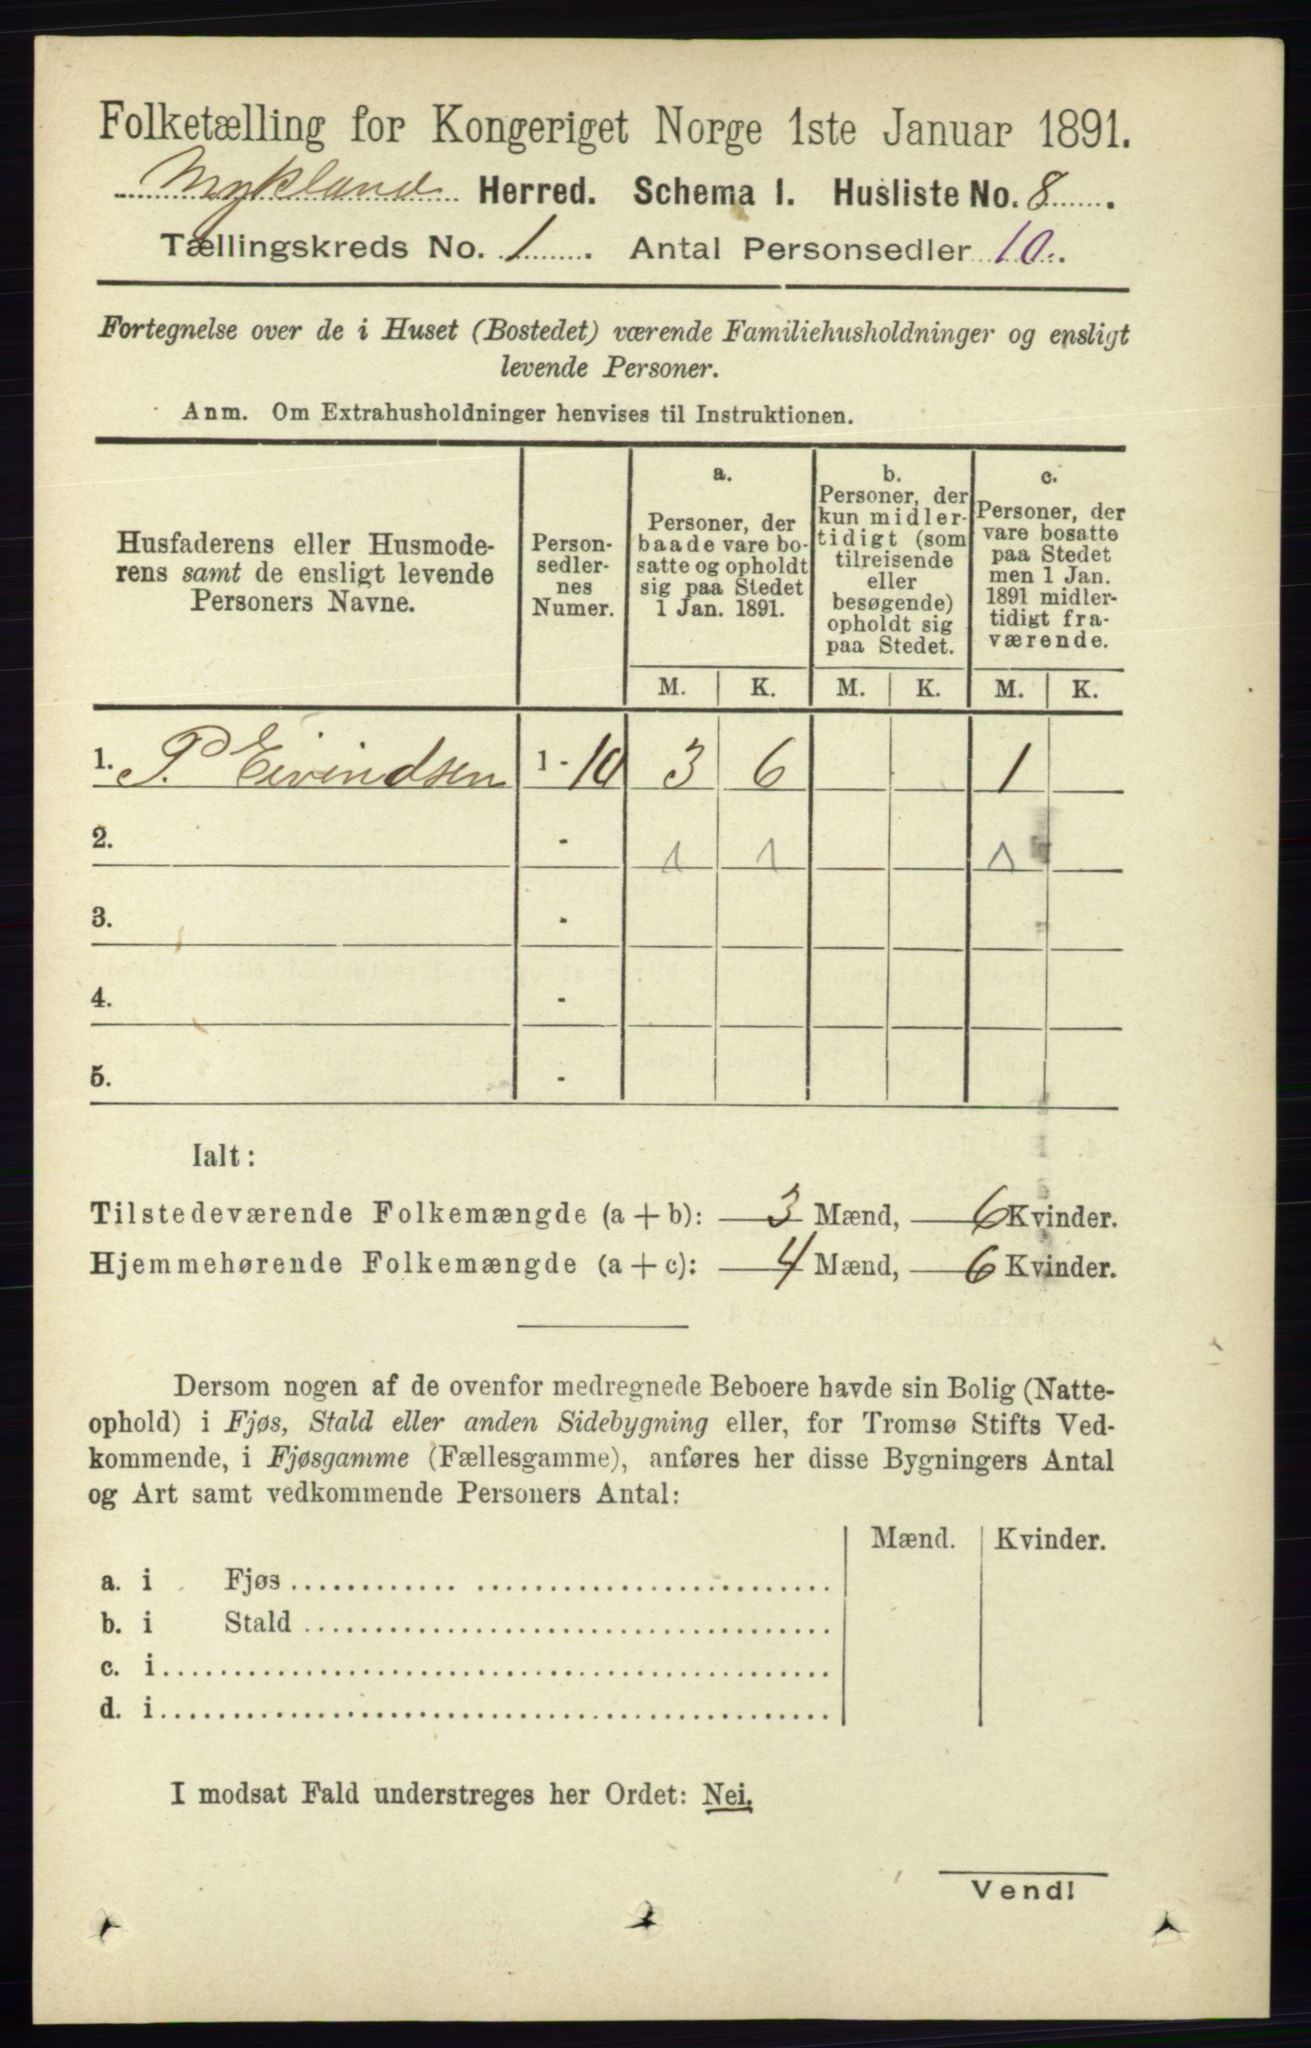 Folketælling for Kongeriget Norge 1ste Januar 1891.
Mykland Herred. Schema I. Husliste No. 8
Tællingskreds No. 1. Antal Personsedler 10.
Fortegnelse over de i Huset (Bostedet) værende Familiehusholdninger og ensligt
levende Personer.
Anm. Om Extrahusholdninger henvises til Instruktionen.
Husfaderens eller Husmode-
rens samt de ensligt levende
Personers Navne.
Person-
sedler-
nes
Numer.
a.
Personer, der
baade vare bo-
satte og opholdt
sig paa Stedet
1 Jan. 1891.
b.
Personer, der
kun midler-
tidigt (som
tilreisende
eller
besøgende)
opholdt sig
paa Stedet.
c.
Personer, der
vare bosatte
paa Stedet
men 1 Jan.
1891 midler-
tidigt fra-
værende.
M. K. M. K. M. K.
1. P. Eivindsen 1 - 10 3 6 1
2. - 1 1 1
3. -
4. -
5. -
Ialt:
Tilstedeværende Folkemængde (a + b): 3 Mænd, 6 Kvinder.
Hjemmehørende Folkemængde (a + c): 4 Mænd, 6 Kvinder.
Dersom nogen af de ovenfor medregnede Beboere havde sin Bolig (Natte-
ophold) i Fjøs, Stald eller anden Sidebygning eller, for Tromsø Stifts Ved-
kommende, i Fjøsgamme (Fællesgamme), anføres her disse Bygningers Antal
og Art samt vedkommende Personers Antal:
Mænd. Kvinder.
a. i Fjøs
b. i Stald
c. i
d. i
I modsat Fald understreges her Ordet: Nei.
Vend!